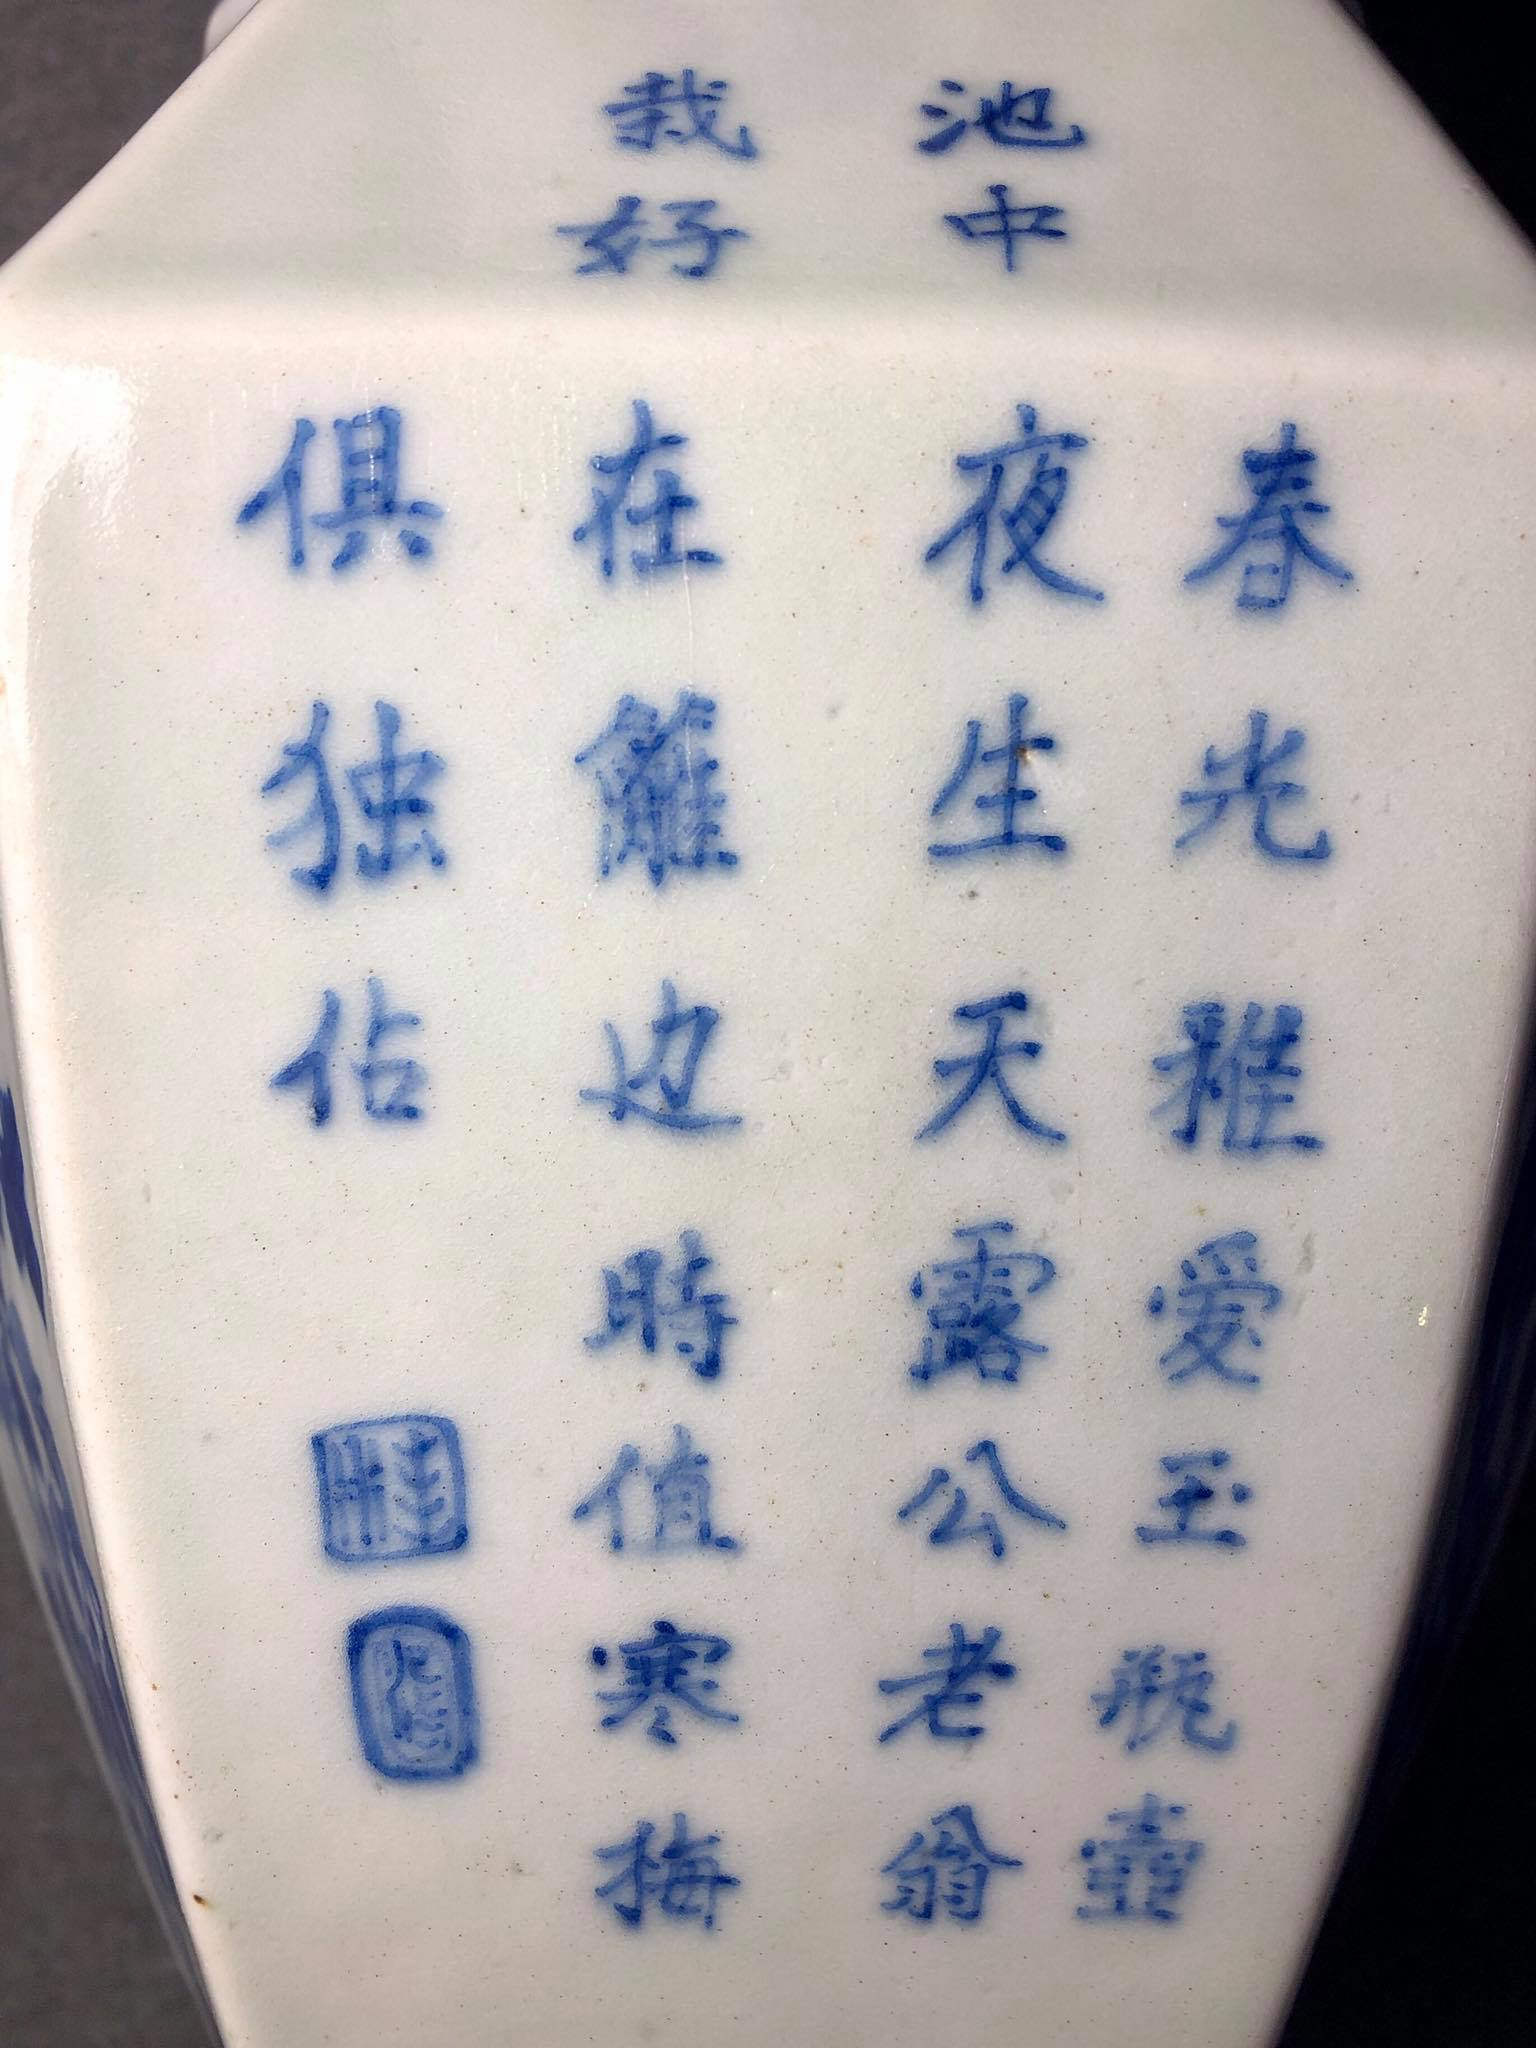 池中
栽好
春光雅愛玉瓶壺
夜生天露公老翁
在籬边時值寒梅
俱独佔